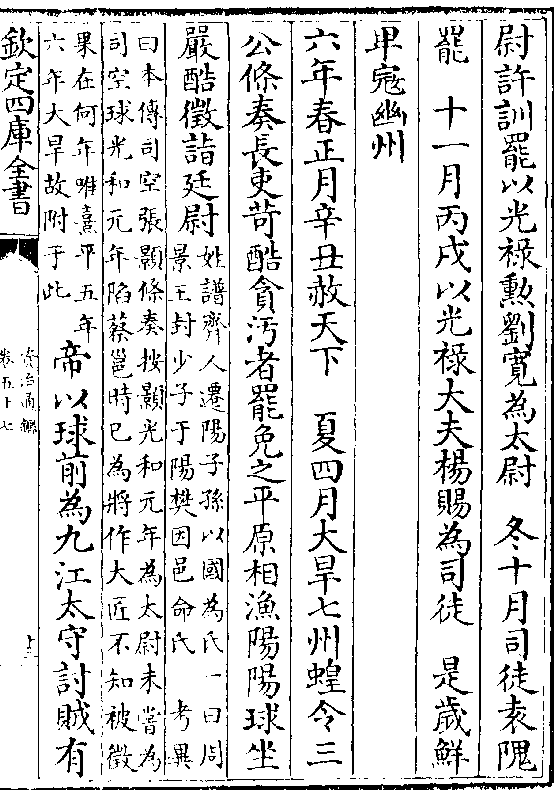 尉許訓罷以光祿勲劉寛為太尉　冬十月司徒袁隗
罷　十一月丙戌以光祿大夫楊賜為司徒　是歲鮮
卑宼幽州
六年春正月辛丑赦天下　夏四月大旱七州蝗令三
公條奏長吏苛酷貪汚者罷免之平原相漁陽陽球坐
嚴酷徵詣廷尉姓譜齊人遷陽子孫以國為氏一曰周
景王封少子于陽樊因邑命氏　考異
曰本傳司空張顥條奏按顥光和元年為太尉未嘗為
司空球光和元年陷蔡邕時已為將作大匠不知被徵
果在何年唯熹平五年
六年大旱故附于此
帝以球前為九江太守討賊有
欽定四庫全書
資治通鑑
卷五十七